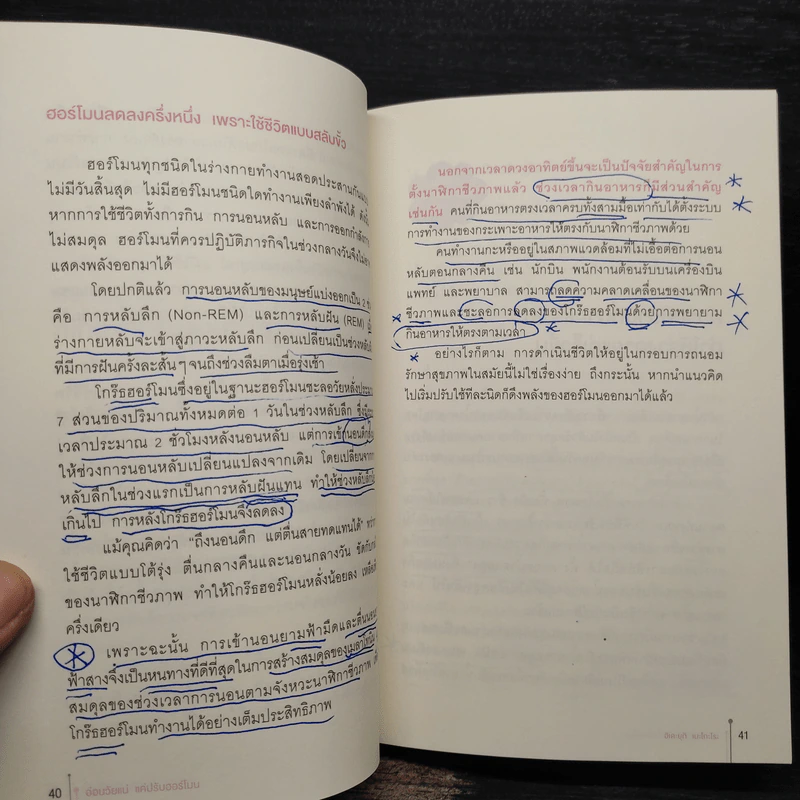 ฮอร์โมนลดลงครึ่งหนึ่ง เพราะใช้ชีวิตแบบสลับขั้ว
ฮอร์โมนทุกชนิดในร่างกายทำงานสอดประสานกัน
ไม่มีวันสิ้นสุด ไม่มีฮอร์โมนชนิดใดทำงานเพียงลำพังได้
หากการใช้ชีวิตทั้งการกิน การนอนหลับ และการออกกำลังกาย
ไม่สมดุล ฮอร์โมนที่ควรปฏิบัติภารกิจในช่วงกลางวันจึงไม่
แสดงพลังออกมาได้
โดยปกติแล้ว การนอนหลับของมนุษย์แบ่งออกเป็น 2
คือ การหลับลึก (Non-REM) และการหลับฝัน (REM)
ร่างกายหลับจะเข้าสู่ภาวะหลับลึก ก่อนเปลี่ยนเป็นช่วงหลับฝัน
ที่มีการฝันครั้งละสั้นๆ จนถึงช่วงลืมตาเมื่อรุ่งเช้า
โกร๊ธฮอร์โมนซึ่งอยู่ในฐานะฮอร์โมนชะลอวัยหลั่งประมาณ
7 ส่วนของปริมาณทั้งหมดต่อ 1 วันในช่วงหลับลึก ซึ่ง
เวลาประมาณ 2 ชั่วโมงหลังนอนหลับ แต่การเข้านอนดึก
ให้ช่วงการนอนหลับเปลี่ยนแปลงจากเดิม โดยเปลี่ยนจาก
หลับลึกในช่วงแรกเป็นการหลับฝันแทน ทำให้ช่วงหลับลึก
เกินไป การหลั่งโกร๊ธฮอร์โมนจึงลดลง
แม้คุณคิดว่า "ถึงนอนดึก แต่ตื่นสายทดแทนได้"
ใช้ชีวิตแบบโต้รุ่ง ตื่นกลางคืนและนอนกลางวัน ขัดกับ
ของนาฬิกาชีวภาพ ทำให้โกร๊ธฮอร์โมนหลั่งน้อยลง
ครึ่งเดียว
เพราะฉะนั้น การเข้านอนยามฟ้ามืดและตื่นนอน
ฟ้าสางจึงเป็นหนทางที่ดีที่สุดในการสร้างสมดุลของเมลาโทนิน
สมดุลของช่วงเวลาการนอนตามจังหวะนาฬิกาชีวภาพ
โกร๊ธฮอร์โมนทำงานได้อย่างเต็มประสิทธิภาพ
40 อ่อนวัยแน่ แค่ปรับฮอร์โมน
นอกจากเวลาดวงอาทิตย์ขึ้นจะเป็นปัจจัยสำคัญในการ
ตั้งนาฬิกาชีวภาพแล้ว ช่วงเวลากินอาหารก็มีส่วนสำคัญ
เช่นกัน คนที่กินอาหารตรงเวลาครบทั้งสามมื้อเท่ากับได้ตั้งระบบ
การทำงานของกระเพาะอาหารให้ตรงกับนาฬิกาชีวภาพด้วย
คนทำงานกะหรืออยู่ในสภาพแวดล้อมที่ไม่เอื้อต่อการนอน
หลับตอนกลางคืน เช่น นักบิน พนักงานต้อนรับบนเครื่องบิน
แพทย์ และพยาบาล สามารถลดความคลาดเคลื่อนของนาฬิกา
ชีวภาพและชะลอการลดลงของโกร๊ธฮอร์โมนด้วยการพยายาม
กินอาหารให้ตรงตามเวลา
อย่างไรก็ตาม การดำเนินชีวิตให้อยู่ในกรอบการถนอม
รักษาสุขภาพในสมัยนี้ไม่ใช่เรื่องง่าย ถึงกระนั้น หากนำแนวคิด
ไปเริ่มปรับใช้ทีละนิดก็ดึงพลังของฮอร์โมนออกมาได้แล้ว
41